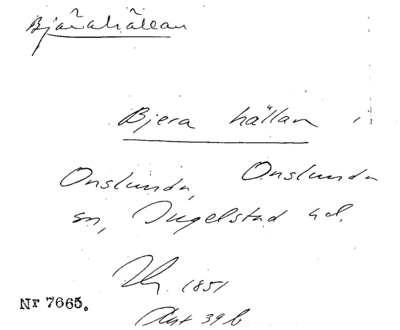 Bjärahällan
Bjera hällan i
Onslunda, Onslunda
sn, Ingelstad hd.
1851
Akt 39 b
Nr 7665.